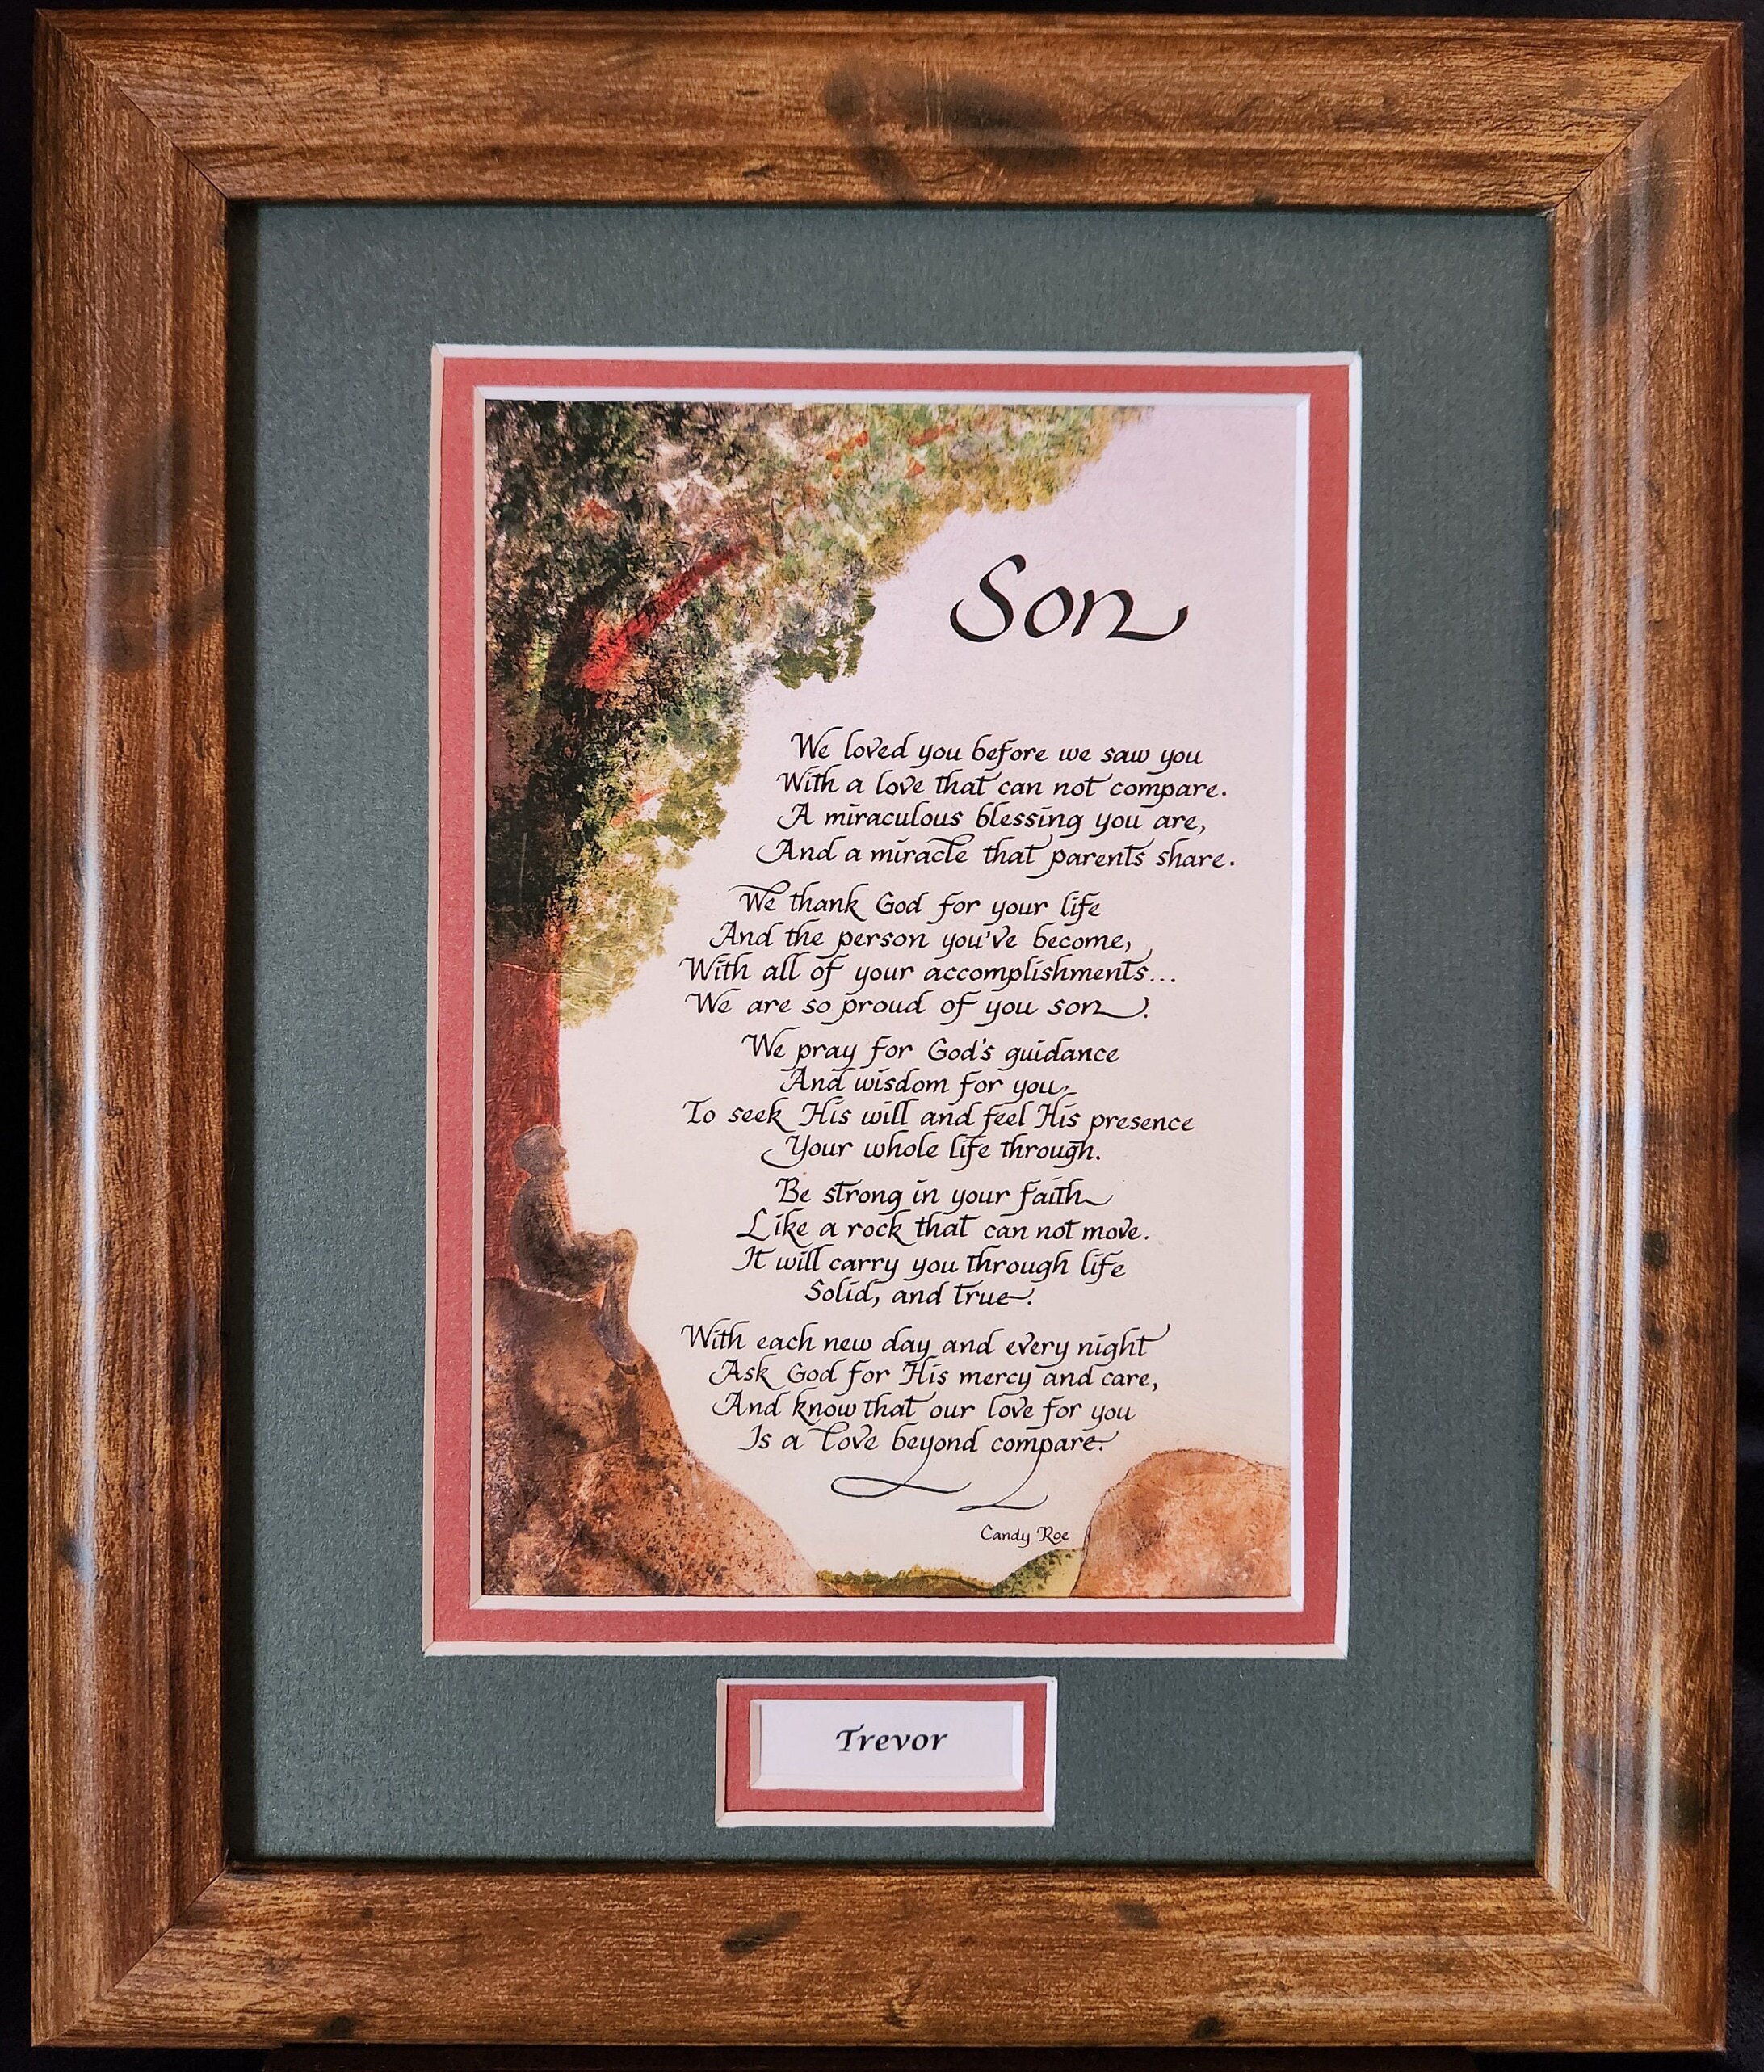 Son
We loved you before we saw you
With a love that can not compare.
A miraculous blessing you are,
And a miracle that parents share.
We thank God for your life
And the person you've become,
With all of your accomplishments...
We are so proud of you son.
We pray for God's guidance
And wisdom for you,
To seek His will and feel His presence
Your whole life through.
Be strong in your faith
Like a rock that can not move.
It will carry you through life
Solid, and true.
With each new day and every night
Ask God for His mercy and care,
And know that our love for you
Is a love beyond compare.
Candy Roe
Trevor